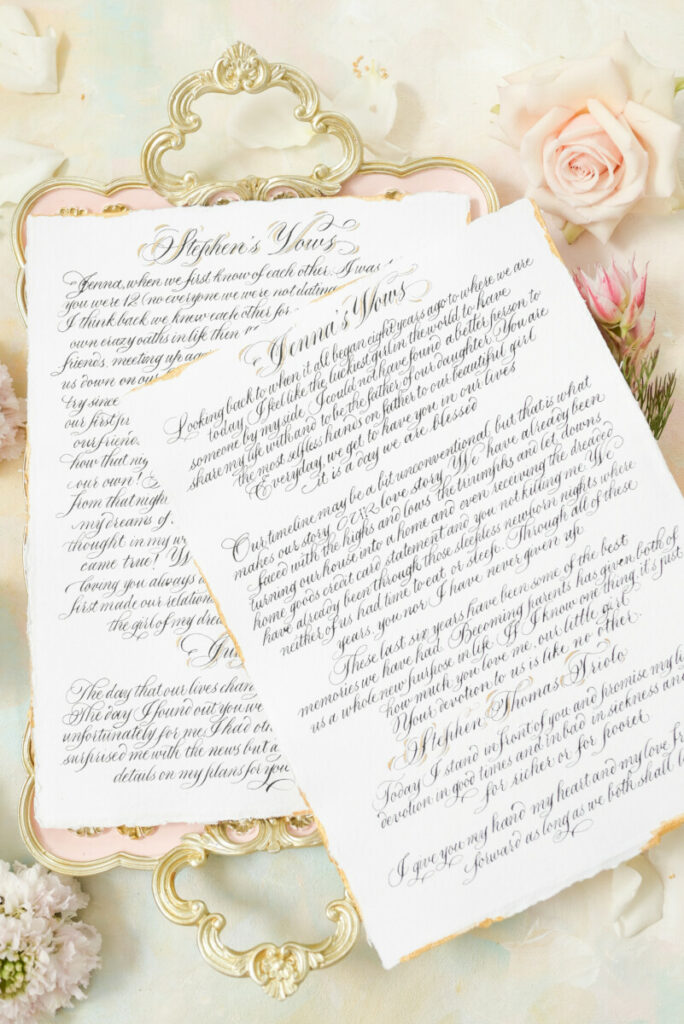 Stephen's Vows
Jenna, when we first knew of each other, I was
you were 12 (no everyone we were not dating
I think back we knew each other for
own crazy paths in life then
friends, meeting up aga
us down on our
try since
our first
our friend
how that nig
our own!
from that night
my dreams of
thought in my w
came true! W
loving you always a
first made our relation
the girl of my drea
The day that our lives chan
The day I found out you we
unfortunately for me I had ot
surprised me with the news but a
details on my plans for you
Jenna's Vows
Looking back to when it all began eight years ago to where we are
today, I feel like the luckiest girl in the world to have
someone by my side. I could not have found a better person to
share my life with and to be the father of our daughter. You are
the most selfless hands on father to our beautiful girl
Everyday we get to have you in our lives
it is a day we are blessed
Our timeline may be a bit unconventional, but that is what
makes our story OUR love story. We have already been
faced with the highs and lows, the triumphs and let downs
turning our house into a home and even receiving the dreaded
home goods credit card statement and you not killing me. We
have already been through those sleepless newborn nights where
neither of us had time to eat or sleep. Through all of these
years you nor I have never given up
These last six years have been some of the best
memories we have had. Becoming parents has given both of
us a whole new purpose in life. If I know one thing it's just
how much you love me, our little girl
Your devotion to us is like no other.
Stephen Thomas Triolo
Today I stand in front of you and promise my li
devotion in good times and in bad in sickness and
for richer or for poorer
I give you my hand my heart and my love fr
forward as long as we both shall l